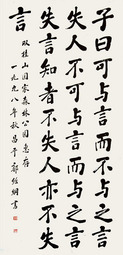 子曰可与言而不与之言
失人不可与言而与之言
失言知者不失人亦不失
言
双桂山国家森林公园惠存
一九九八年秋昌平书